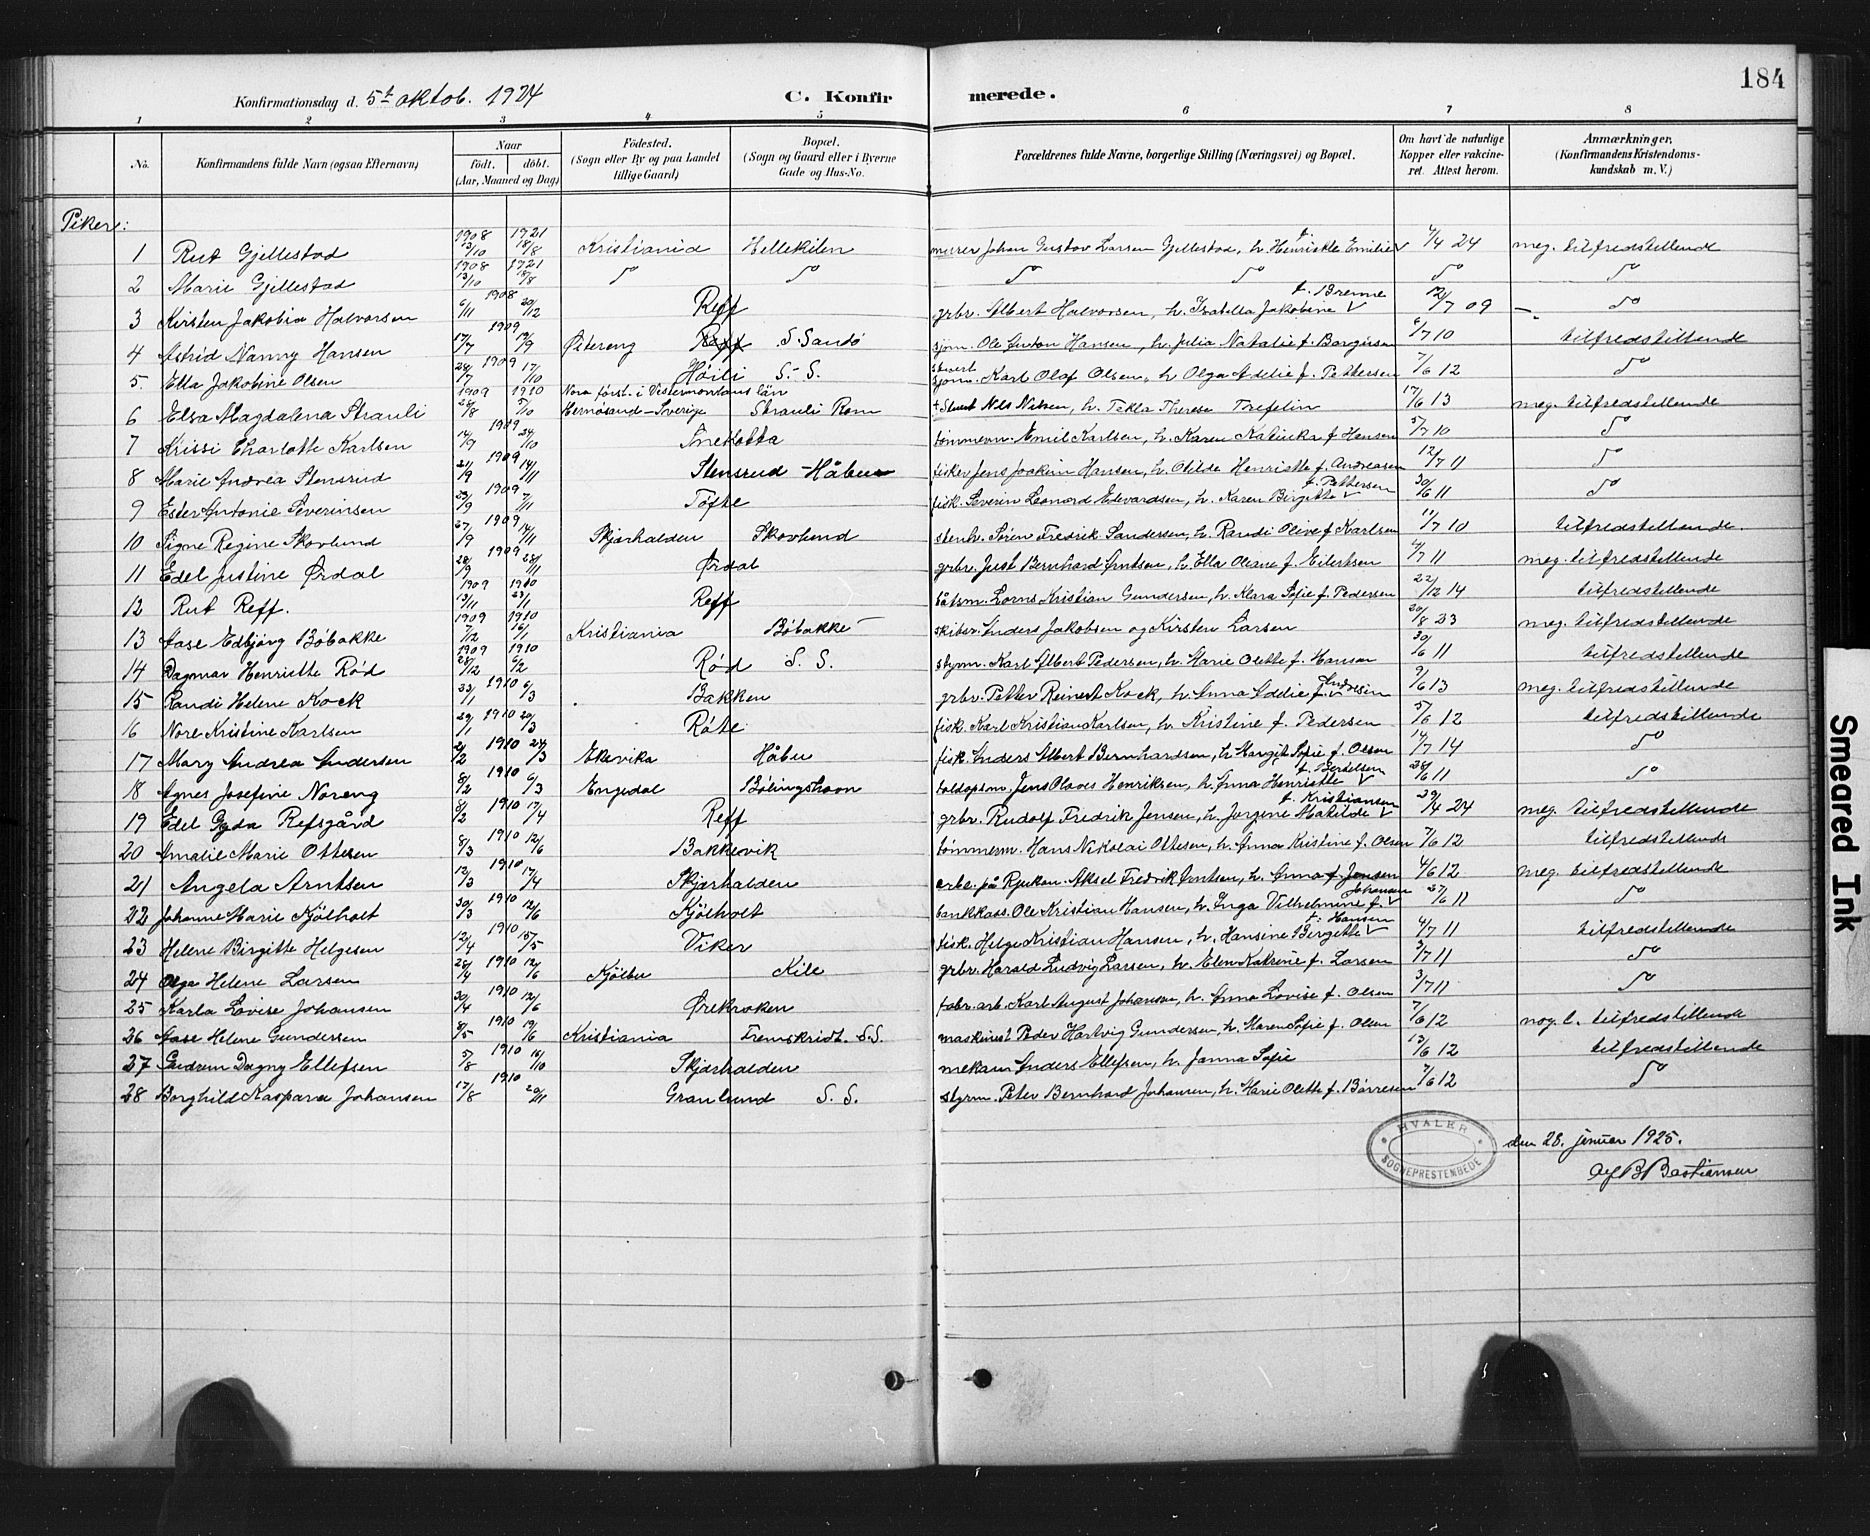 184
Konfirmationsdag d. 5t oktob. 1924 C. Konfirmerede.
1 2 3 4 5 6 7 8
No. Konfirmandens fulde Navn (ogsaa Efternavn) Naar født. døbt. (Aar, Maaned og Dag) Fødested. (Sogn eller By og paa Landet tillige Gaard) Bopæl. (Sogn og Gaard eller i Byerne Gade og Hus-No. Forældrenes fulde Navne, borgerlige Stilling (Næringsvei) og Bopæl. Om havt de naturlige Kopper eller vakcineret. Attest herom. Anmærkninger, (Konfirmandens Kristendomskundskab m. V.)
Piker:
1 Rut Gjellestad 1908 13/10 1921 18/8 Kristiania Hellekilen murer Johan Gustav Larsen Gjellestad, h. Henrikke Emilie 4/4 24 meg. tilfredstillende
2 Marie Gjellestad 1908 13/10 1921 18/8 do do do do do do
3 Kirsten Jakobia Halvorsen 6/11 1908 20/12 Reff grbr. Albert Halvorsen, h. Isabella Jakobine f. Brenne 12/7 09 do
4 Astrid Nanny Hansen 17/7 1909 19/9 Øitereng Reff S. Sandø sjøm. Ole Anton Hansen, h. Julia Natalie f. Borgersen 6/7 10 tilfredstillende
5. Ella Jakobine Olsen 28/7 1909 17/10 Høili S.S. stuert sjøm. Karl Olaf Olsen, h. Olga Adelie f. Pettersen 7/6 12 do
6 Elsa Magdalena Strauli 1909 28/8 1910 5/10 Nora först. i Vestermontans län Hernösand-Sverige Strauli Rom Nils Nilsen, h. Tekla Therese Trefelin 17/6 13 meg. tilfredstillende
7 Krissi Charlotte Karlsen 14/9 1909 24/10 Snekotta tømmerm. Emil Karlsen, h. Karen Katinka f. Hansen 5/7 10 do
8 Marie Andrea Stensrud 21/9 1909 14/11 Stensrud-Håbu fisker Jens Joakim Hansen, h. Otilde Henriette f. Andreasen 12/7 11 do
9 Ester Antonie Severinsen 23/9 1909 7/11 Tofte fisk. Severin Leonard Edvardsen, h. Karen Birgitte f. Pettersen 30/6 11 do
10 Signe Regine Skovlund 27/9 1909 14/11 Skjærhalden Skovlund stenh. Søren Fredrik Sandersen, h. Randi Olive f. Karlsen 11/7 10 tilfredstillende.
11 Edel Justine Ørdal 28/9 1909 28/11 Ørdal grbr. Just Bernhard Arntsen, h. Ella Oleane f. Eilertsen 4/7 11 meg. tilfredstillende
12 Rut Reff. 1909 13/11 1910 23/1 Reff båtsm. Lorns Kristian Gundersen, h. Klara Sofie f. Pedersen 22/12 14 tilfredstillende
13 Aase Edbjörg Böbakke 1909 7/12 1910 16/1 Kristiania Böbakke skiber. Anders Jakobsen og Kirsten Larsen 20/8 23 meg. tilfredstillende
14 Dagmar Henriette Rød 1909 28/12 1910 6/2 Rød S. S. styrm. Karl Albert Pedersen, h. Marie Olette f. Hansen 30/6 11 tilfredstillende
15 Randi Helene Kock 23/1 1910 6/3 Bakken grbr. Petter Reinert Kock, h. Anna Addie f. Andresen 9/6 13 meg. tilfredstillende
16 Nore Kristine Karlsen 29/1 1910 20/3 Røte fisk. Karl Kristian Karlsen, h. Kristine f. Pedersen 5/6 12 tilfredstillende
17 Mary Andrea Andersen 2/2 1910 24/3 Ekevika Håbu fisk. Anders Albert Bernhardsen, h. Margit Sofie f. Olsen 14/7 14 do
18 Agnes Josefine Noreng 8/2 1910 6/3 Engedal Bölingshavn toldopsm. Jens Olaves Henriksen, h. Anna Henriette f. Bertelsen 28/6 11 do
19 Edel Gyda Refsgård 8/2 1910 17/4 Reff grbr. Rudolf Fredrik Jensen, h. Jørgine Matilde f. Kristiansen 29/4 24 meg. tilfredstillende
20 Amalie Marie Ottesen 8/3 1910 12/6 Bakkevik tømmerm. Hans Nikolai Ottesen, h. Anna Kristine f. Olsen 7/6 12 tilfredstillende
21 Angela Arntsen 12/3 1910 17/4 Skjærhalden arb. på Rjukan. Aksel Fredrik Arntsen, h. Anna f. Jensen 4/6 12 meg. tilfredstillende
22 Johanne Marie Kjölholt 30/3 1910 12/6 Kjölholt bankkass. Ole Kristian Hansen, h. Inga Vilhelmine f. Johansen 27/6 11 do
23 Helene Birgitte Helgesen 12/4 1910 15/5 Viker fisk. Helge Kristian Hansen, h. Hansine Bergette f. Hansen 4/7 11 tilfredstillende
24 Olga Helene Larsen 28/4 1910 12/6 Kjölbu Kile grbr. Harald Ludvig Larsen, h. Elen Katrine f. Larsen 3/7 11 do
25 Karla Lovise Johansen 30/4 1910 12/6 Ørekroken fabr. arb. Karl August Johansen, h. Anna Lovise f. Olsen 3/7 11 do
26 Aase Helene Gundersen 8/5 1910 19/6 Kristiania Fremskridt. S.S. maskinist Peder Hartvig Gundersen, h. Maren Sofie f. Olsen 7/6 12 nog. l. tilfredstillende
27 Gudrun Dagny Ellefsen 5/8 1910 16/10 Skjærhalden mekan. Anders Ellefsen, h. Janna Sofie 13/6 12 tilfredstillende
28 Borghild Kaspara Johansen 17/8 1910 20/11 Granlund S. S. styrm. Peter Bernhard Johansen, h. Marie Olette f. Børresen 7/6 12 do
HVALER SOGNEPRESTEMBEDE
den 28. januar 1925.
Alf B Bastiansen
Smeared Ink